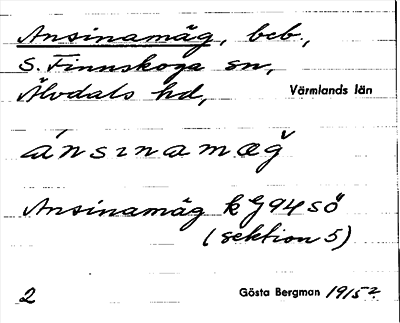 Ansinamäg, beb.,
S. Finnskoga sn,
Älvdals hd, Värmlands län
ánsınamæğ
Ansinamäg k G94 sö
(sektion 5)
2 Gösta Bergman 1915